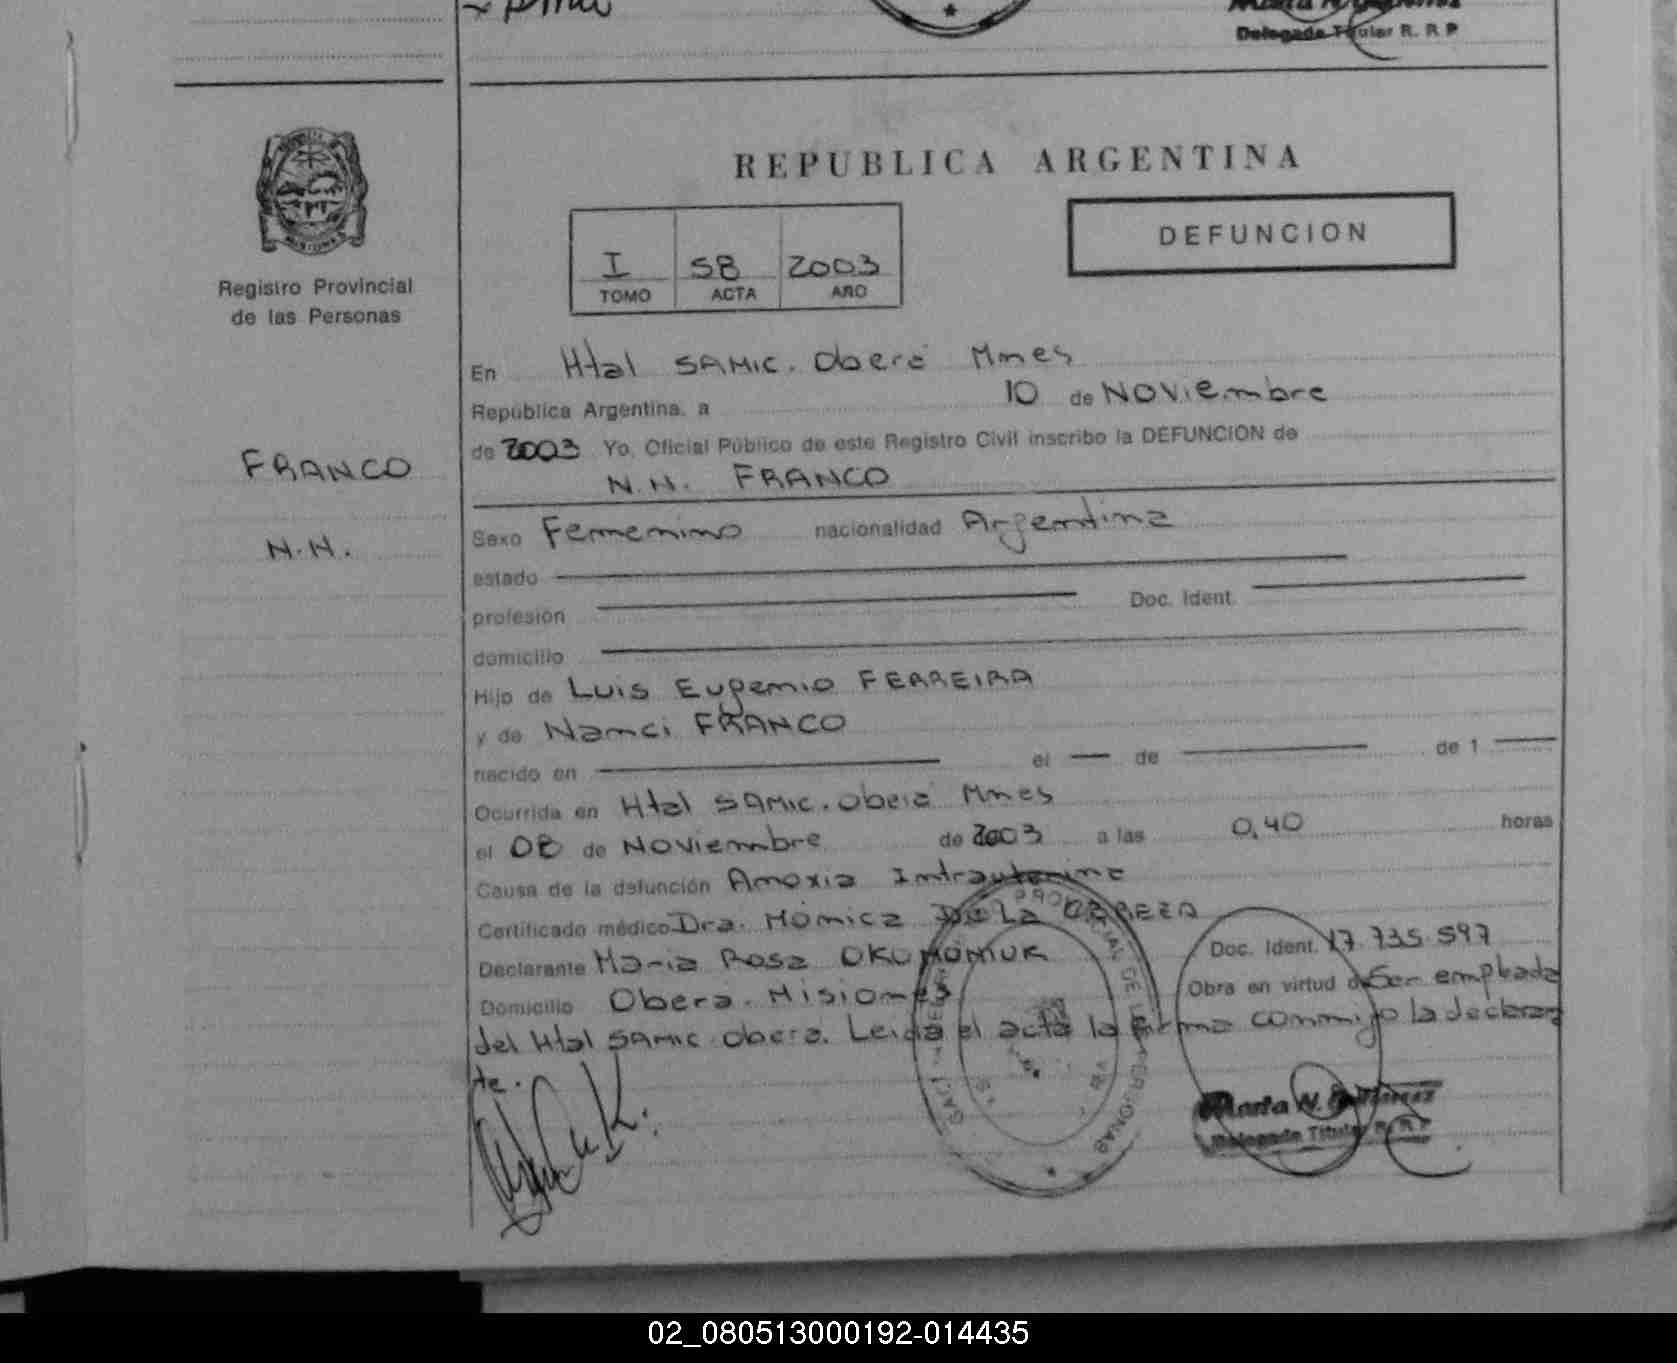 Delegada Titular R. R P
Registro Provincial
de las Personas
FRANCO
N.N.
REPUBLICA ARGENTINA
I 58 2003
TOMO ACTA AÑO
DEFUNCION
En Htal SAMIC. Oberá Mnes
República Argentina, a 10 de NOViembre
de 2003 Yo, Oficial Público de este Registro Civil inscribo la DEFUNCION de
N.N. FRANCO
Sexo Femenino nacionalidad Argentina
estado
profesión Doc. Ident.
domicilio
Hijo de Luis Eugenio FERREIRA
y de Nanci FRANCO
nacido en el de de 1
Ocurrida en Htal SAMIC. Oberá Mnes
el 08 de Noviembre de 2003 a las 0,40 horas
Causa de la defunción Anoxia Intrauterina
Certificado médico Dra. Mónica De La
Declarante Maria Rosa Doc. Ident. 17.735.597
Domicilio Oberá. Misiones Obra en virtud de Ser empleada
del Htal SAMIC Oberá. Leida el acta la firma conmigo la declaran
te.
Delegada Titular R. R P
02_080513000192-014435